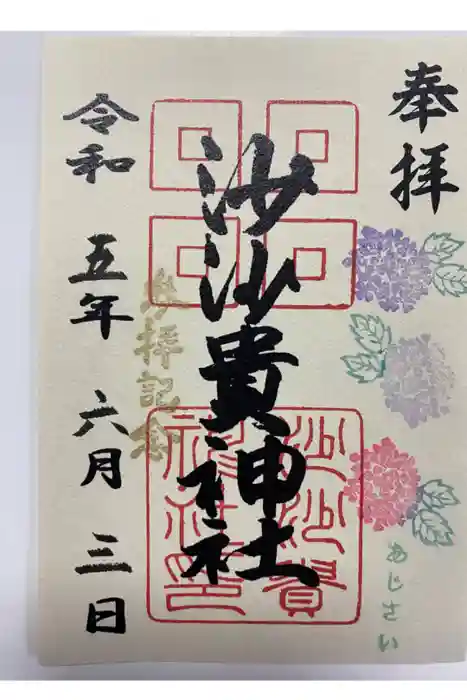 奉拝
沙沙貴神社
沙沙貴
神社印
参拝記念
令和五年六月三日
あじさい